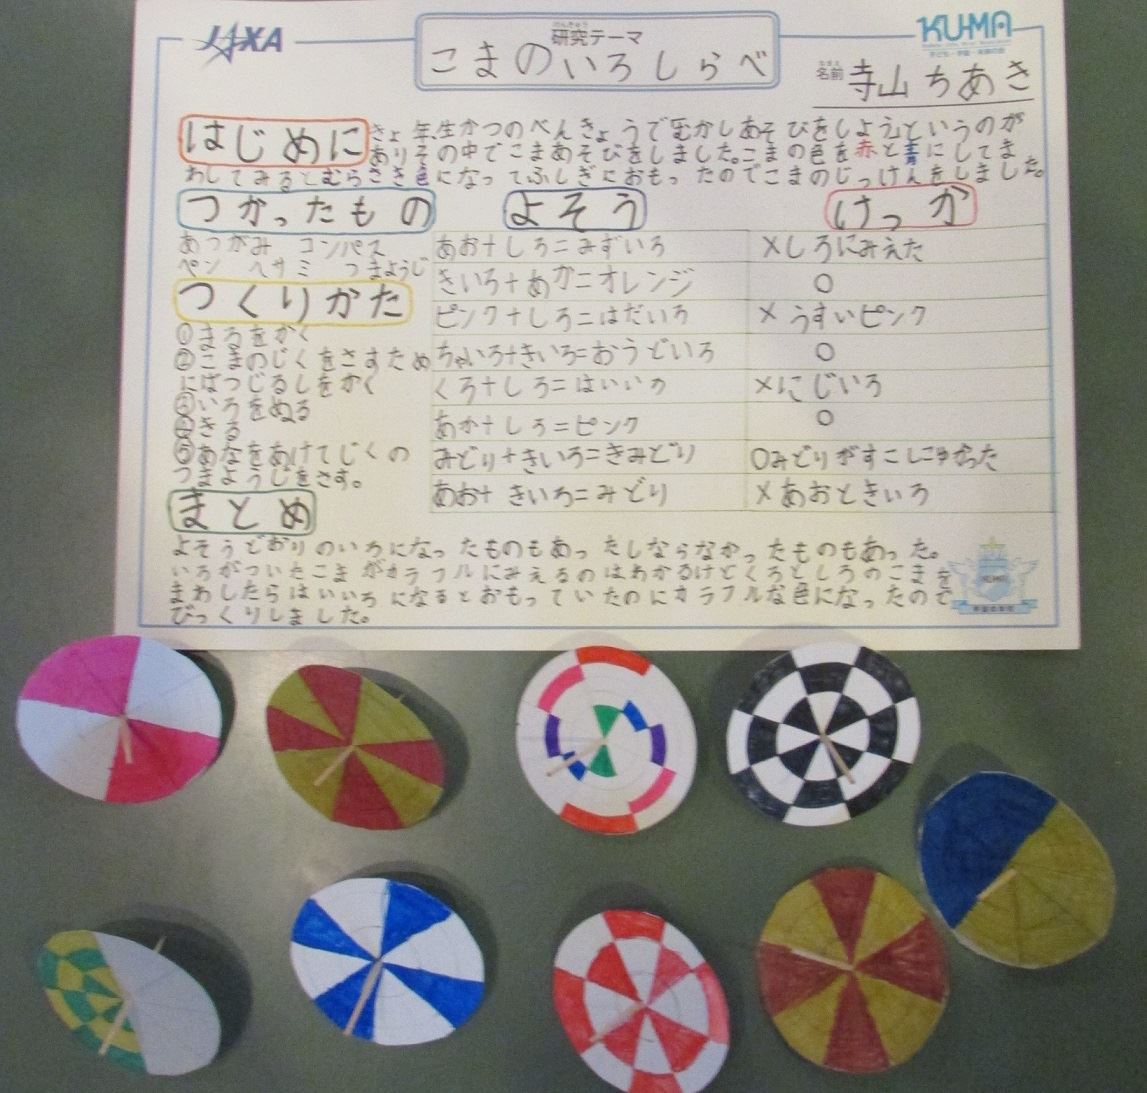 JAXA
研究テーマ
こまのいろしらべ
KU-MA
名前 寺山ちあき
はじめに
きょ年生かつのべんきょうでむかしあそびをしようというのが
ありその中でこまあそびをしました。こまの色を赤と青にしてま
わしてみるとむらさき色になってふしぎにおもったのでこまのじっけんをしました。
つかったもの
あつがみ コンパス
ペン ハサミ つまようじ
つくりかた
①まるをかく
②こまのじくをさすため
にばつじるしをかく
③いろをぬる
④きる
⑤あなをあけてじくの
つまようじをさす。
よそう けっか
あお+しろ=みずいろ ×しろにみえた
きいろ+あか=オレンジ ○
ピンク+しろ=はだいろ ×うすいピンク
ちゃいろ+きいろ=おうどいろ ○
くろ+しろ=はいいろ ×にじいろ
あか+しろ=ピンク ○
みどり+きいろ=きみどり ○みどりがすこしこゆかった
あお+きいろ=みどり ×あおときいろ
まとめ
よそうどおりのいろになったものもあったしならなかったものもあった。
いろがついたこまがカラフルにみえるのはわかるけどくろとしろのこまを
まわしたらはいいろになるとおもっていたのにカラフルな色になったので
びっくりしました。
KUMA